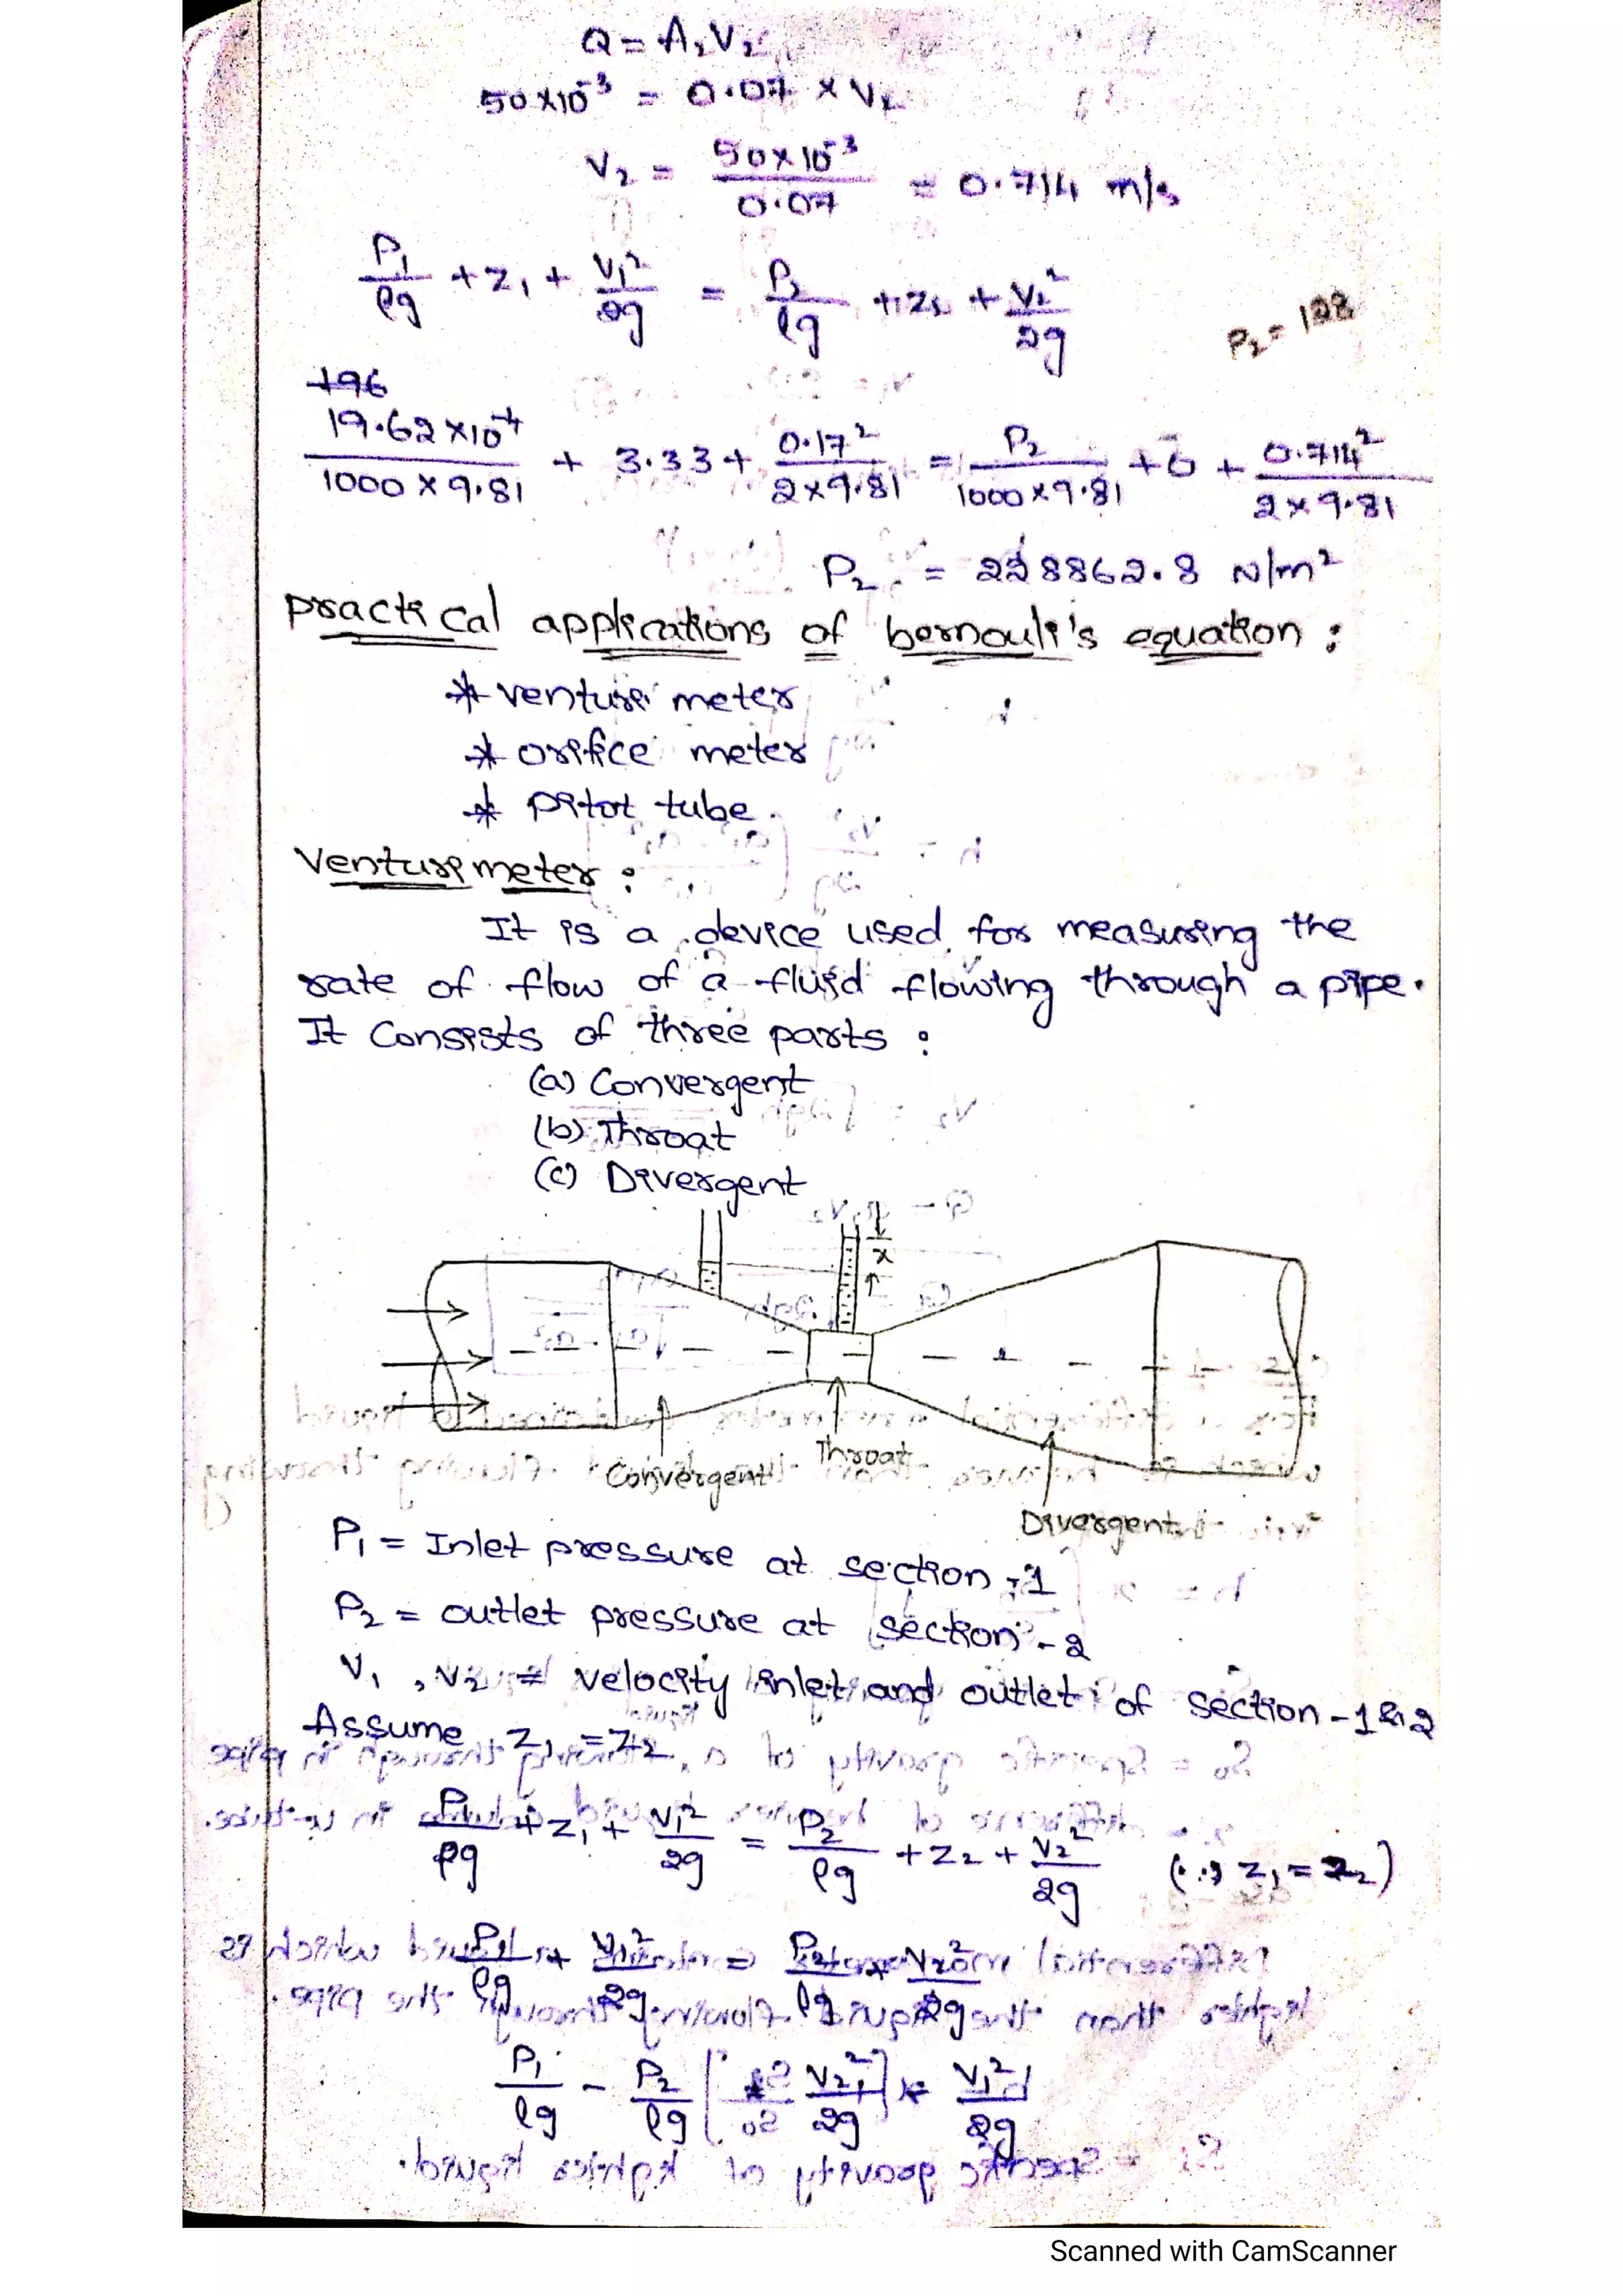 Q = A₂V₂
50×10⁻³ = 0.07 × V₂
V₂ = 50×10⁻³ / 0.07 = 0.714 m/s
P₁/ρg + Z₁ + V₁²/2g = P₂/ρg + Z₂ + V₂²/2g
P₂ = 128
196
19.62×10⁴ / 1000×9.81 + 3.33 + 0.17² / 2×9.81 = P₂ / 1000×9.81 + 0 + 0.714² / 2×9.81
P₂ = 228862.8 N/m²
practical applications of bernouli's equation :
* venturi meter
* orifice meter
* pitot tube.
Venturi meter :
It is a device used for measuring the
rate of flow of a fluid flowing through a pipe.
It Consists of three parts :
(a) Convergent
(b) Throat
(c) Divergent
x
Convergent
Throat
Divergent
P₁ = Inlet pressure at section - 1
P₂ = outlet pressure at section - 2
V₁, V₂ = velocity inlet and outlet of section - 1 & 2
Assume Z₁ = Z₂
P₁/ρg + Z₁ + V₁²/2g = P₂/ρg + Z₂ + V₂²/2g (∵ Z₁ = Z₂)
P₁/ρg + V₁²/2g = P₂/ρg + V₂²/2g
P₁/ρg - P₂/ρg V₂²/2g V₁²/2g
Scanned with CamScanner